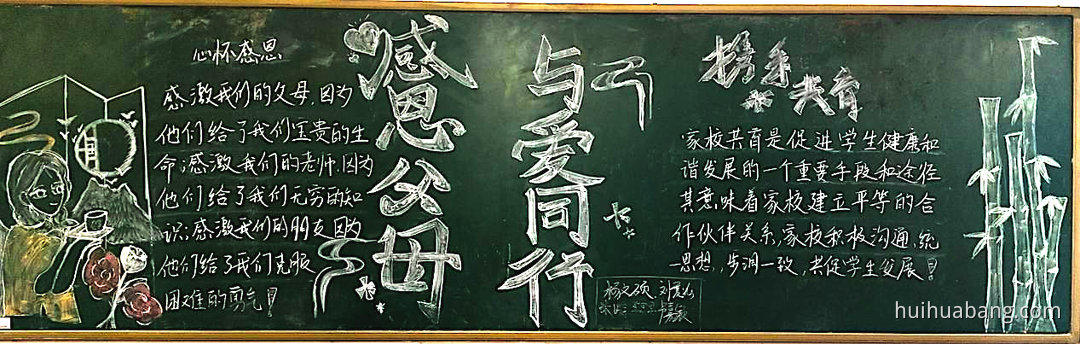 心怀感恩
感激我们的父母,因为
他们给了我们宝贵的生
命;感激我们的老师,因为
他们给了我们无穷的知
识;感激我们的朋友因为
他们给了我们克服
困难的勇气!
感恩父母
与爱同行
携手
共育
家校共育是促进学生健康和
谐发展的一个重要手段和途径
其意味着家校建立平等的合
作伙伴关系,家校积极沟通,统
一思想,步润一致,共促学生发展!
huihuabang.com